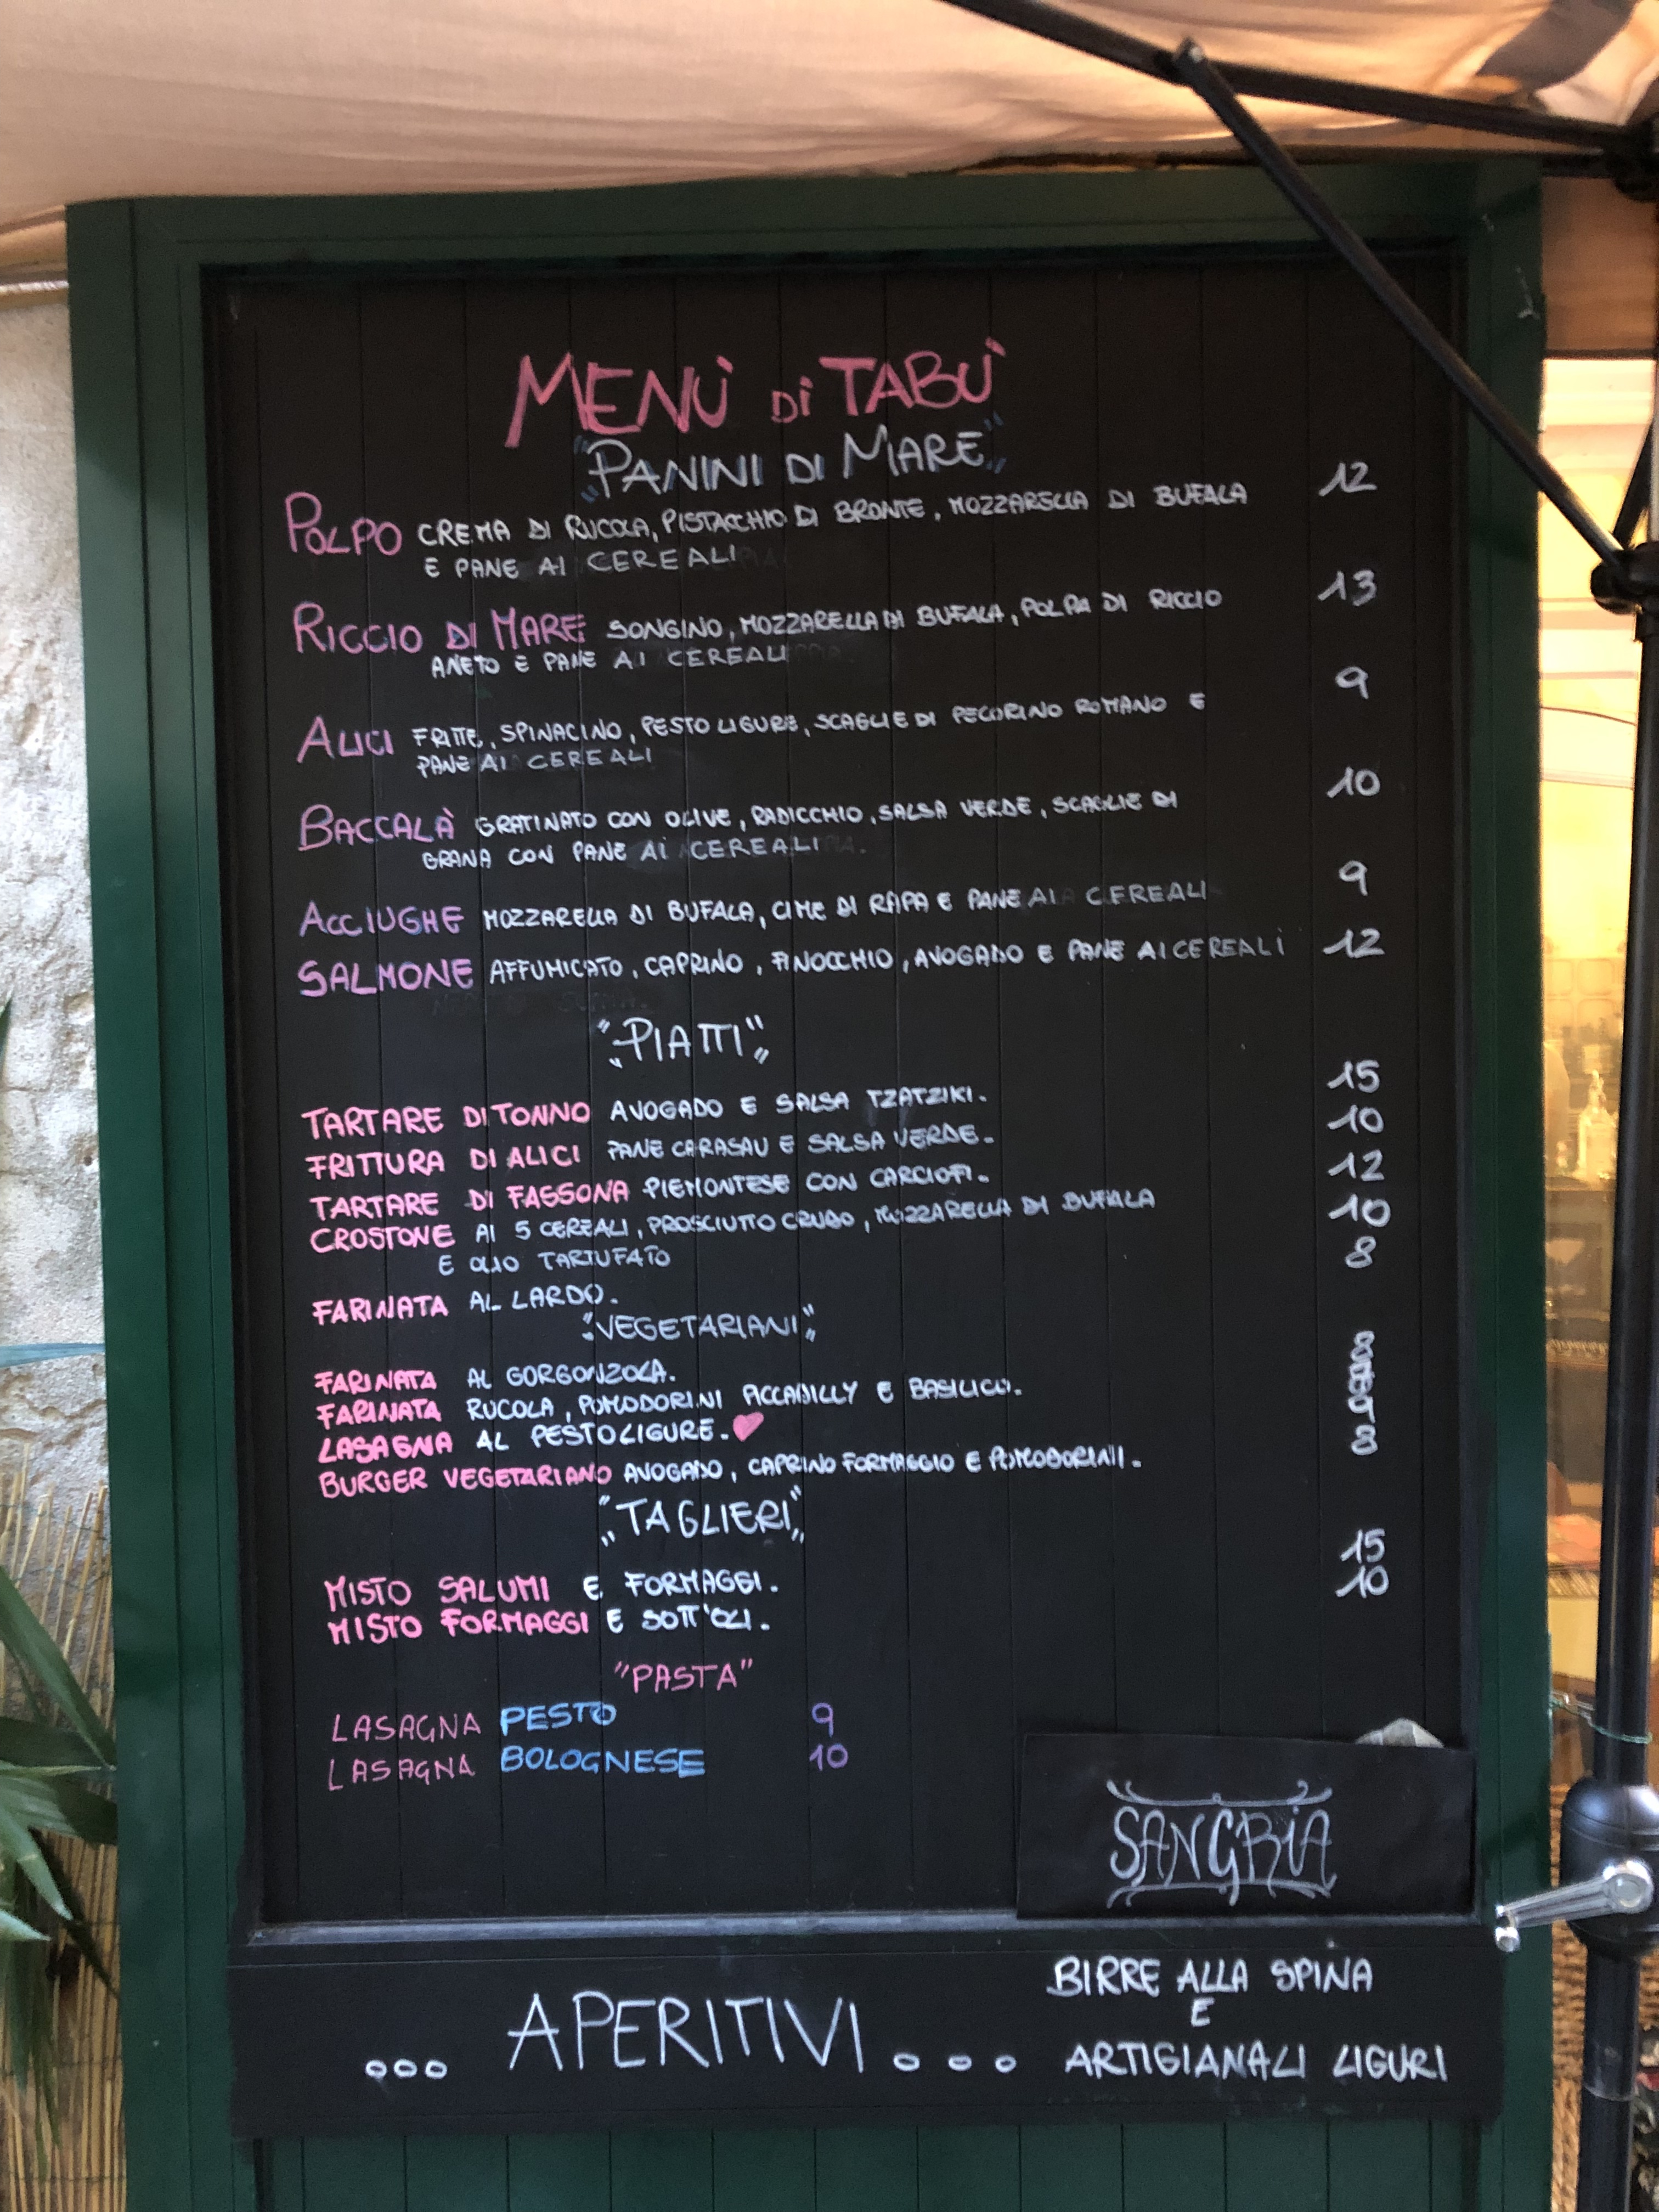 MENÙ Di TABÙ
"PANINI DI MARE"
POLPO CREMA DI RUCOLA, PISTACCHIO DI BRONTE, MOZZARELLA DI BUFALA 12
E PANE AI CEREALI
RICCIO DI MARE SONGINO, MOZZARELLA DI BUFALA, POLPA DI RICCIO 13
ANETO E PANE AI CEREALI
ALICI FRITTE, SPINACINO, PESTO LIGURE, SCAGLIE DI PECORINO ROMANO E 9
PANE AI CEREALI
BACCALÀ GRATINATO CON OLIVE, RADICCHIO, SALSA VERDE, SCAGLIE DI 10
GRANA CON PANE Ai CEREALI
ACCIUGHE MOZZARELLA DI BUFALA, CIME DI RAPA E PANE AI CEREALI 9
SALMONE AFFUMICATO, CAPRINO, FINOCCHIO, AVOGADO E PANE AI CEREALI 12
"PIATTI"
TARTARE DI TONNO AVOGADO E SALSA TZATZIKI. 15
FRITTURA DI ALICI PANE CARASAU E SALSA VERDE. 10
TARTARE DI FASSONA PIEMONTESE CON CARCIOFI. 12
CROSTONE AI 5 CEREALI, PROSCIUTTO CRUDO, MOZZARELLA DI BUFALA 10
E OLIO TARTUFATO
FARINATA AL LARDO. 8
"VEGETARIANI"
FARINATA AL GORGONZOLA. 8
FARINATA RUCOLA, POMODORINI PICCADILLY E BASILICO.
LASAGNA AL PESTO LIGURE. 9
BURGER VEGETARIANO AVOGADO, CAPRINO FORMAGGIO E POMODORINI. 8
"TAGLIERI"
MISTO SALUMI E FORMAGGI. 15
MISTO FORMAGGI E SOTT'OLI. 10
"PASTA"
LASAGNA PESTO 9
LASAGNA BOLOGNESE 10
SANGRiA
... APERITIVI ...
BIRRE ALLA SPINA
E
ARTIGIANALI LIGURI